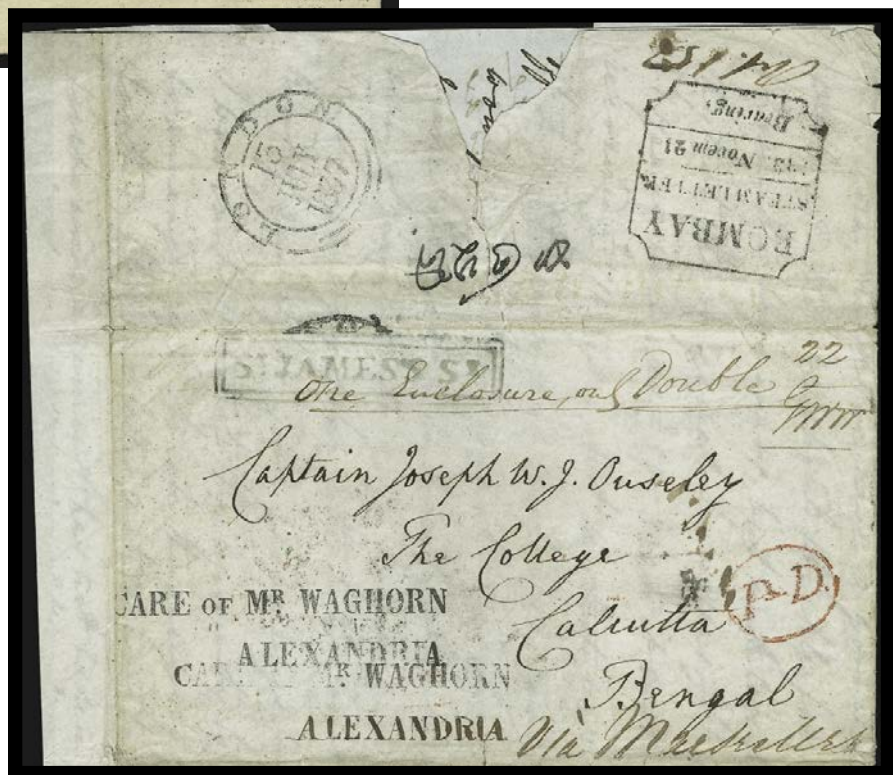 LONDON
15
1837
BOMBAY
STEAM LETTER
Novem 21
Bearing.
ST JAMES'S ST
One Enclosure, only Double
22
Captain Joseph W. J. Ouseley
The College
Calcutta
Bengal
Via Marseilles
P.D.
CARE OF MR WAGHORN
ALEXANDRIA
CARE MR WAGHORN
ALEXANDRIA